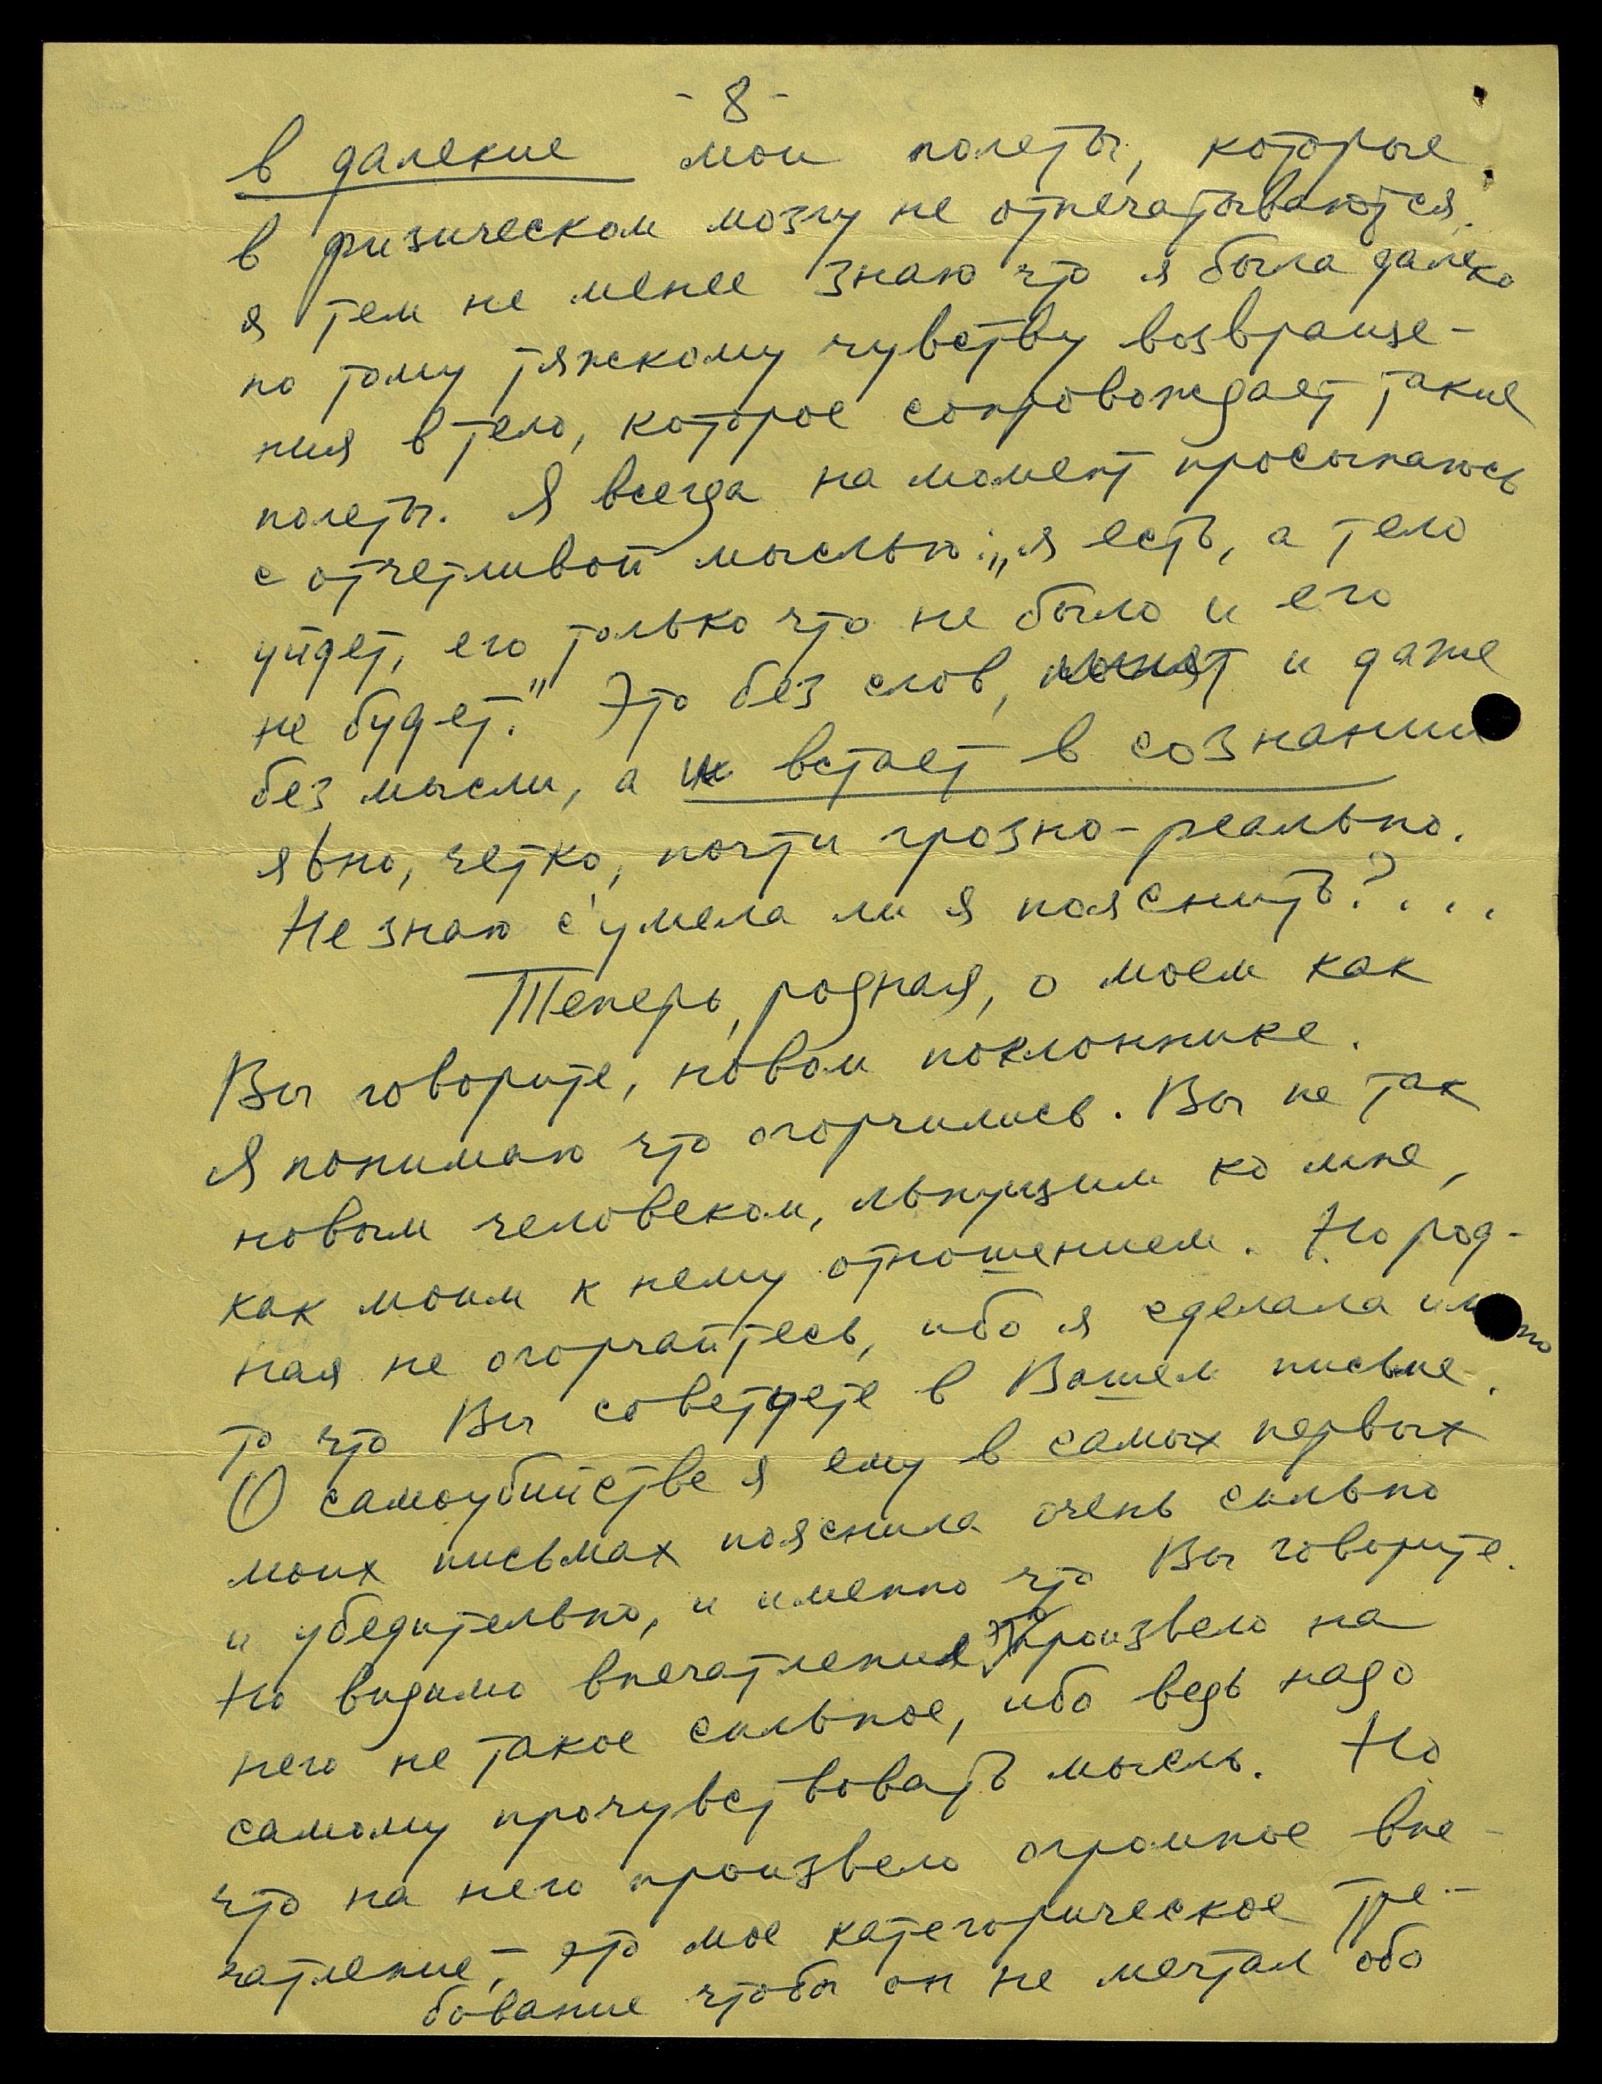 - 8 -
в далекие мои полеты, которые
в физическом мозгу не отпечатываются.
я тем не менее знаю что я была далеко
по тому тяжкому чувству возвраще-
ния в тело, которое сопровождает такие
полеты. Я всегда на момент просыпаюсь
с отчетливой мыслью: „я есть, а тело
уйдет, его только что не было и его
не будет." Это без слов, и даже
без мысли, а встает в сознании
явно, четко, почти грозно-реально.
Не знаю с'умела ли я пояснить?...
Теперь, родная, о моем как
Вы говорите, новом поклоннике.
Я понимаю что огорчились. Вы не так
новым человеком, льнущим ко мне,
как моим к нему отношением. Но род-
ная не огорчайтесь, ибо я сделала им но
то что Вы советуете в Вашем письме.
О самоубийстве я ему в самых первых
моих письмах пояснила очень сильно
и убедительно, и именно что Вы говорите.
Но видимо впечатление это произвело на
него не такое сильное, ибо ведь надо
самому прочувствовать мысль. Но
что на него произвело огромное впе-
чатление, - это мое категорическое тре-
бование чтобы он не мечтал обо